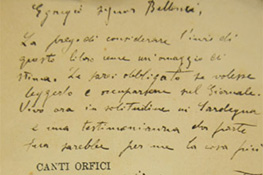 Egregio Signor Bellonci,
La prego di considerare l'invio di
questo libro come un omaggio di
stima. Le sarei obbligato se volesse
leggerlo e occuparsene sul Giornale.
Vivo ora in solitudine in Sardegna
e una testimonianza da parte
Sua sarebbe per me la cosa più
CANTI ORFICI